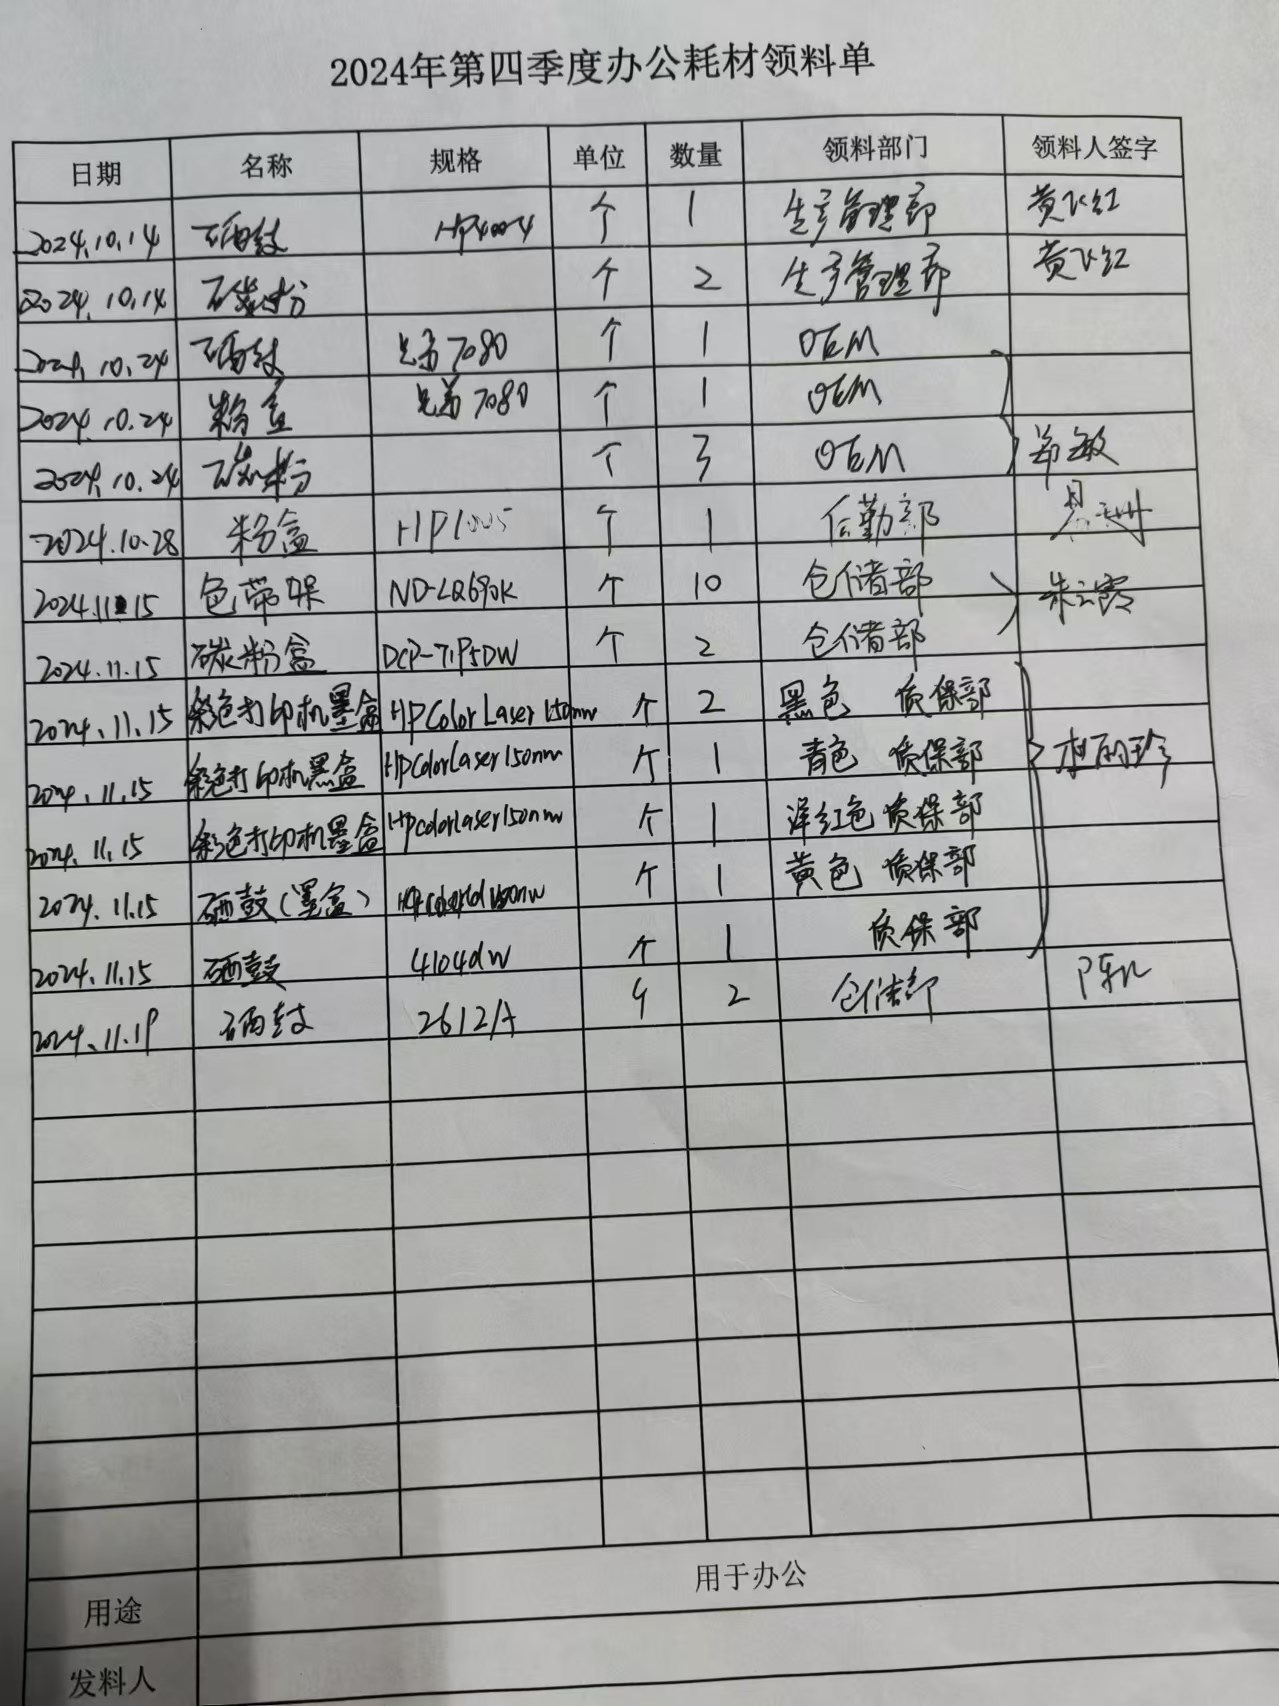 2024年第四季度办公耗材领料单
日期 名称 规格 单位 数量 领料部门 领料人签字
2024.10.14 硒鼓 HP4004 个 1 生产管理部 黄飞红
2024.10.14 碳粉 个 2 生产管理部 黄飞红
2024.10.24 硒鼓 兄弟7080 个 1 OEM
2024.10.24 粉盒 兄弟7080 个 1 OEM
2024.10.24 碳粉 个 3 OEM 郑敏
2024.10.28 粉盒 HP1005 个 1 后勤部
2024.11.15 色带架 ND-LQ690K 个 10 仓储部 朱云霞
2024.11.15 碳粉盒 个 2 仓储部
2024.11.15 彩色打印机墨盒 HP Color Laser 150nw 个 2 黑色 质保部
2024.11.15 彩色打印机墨盒 HPColorLaser150nw 个 1 青色 质保部
2024.11.15 彩色打印机墨盒 Hpcolorlaser150nw 个 1 洋红色 质保部
2024.11.15 硒鼓(墨盒) 个 1 黄色 质保部
2024.11.15 硒鼓 4104dw 个 1 质保部
2024.11.19 硒鼓 2612A 个 2 仓储部
用途 用于办公
发料人